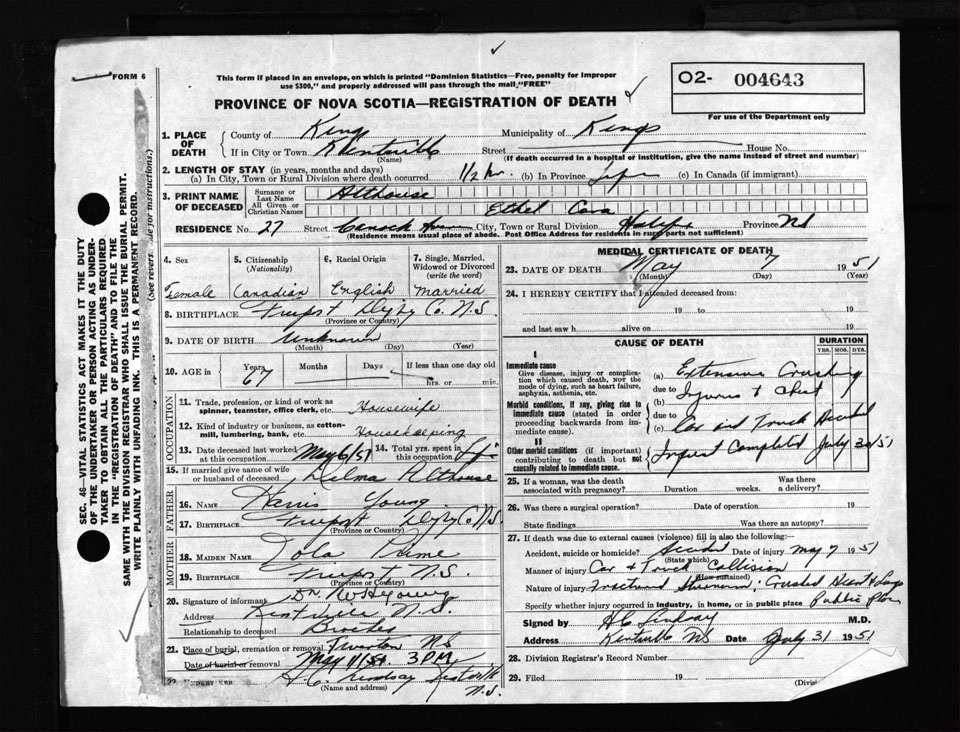 FORM 6
This form if placed in an envelope, on which is printed "Dominion Statistics—Free, penalty for improper
use $300," and properly addressed will pass through the mail, "FREE"
PROVINCE OF NOVA SCOTIA—REGISTRATION OF DEATH
O2- 004643
For use of the Department only
SEC. 46—VITAL STATISTICS ACT MAKES IT THE DUTY
OF THE UNDERTAKER OR PERSON ACTING AS UNDER-
TAKER TO OBTAIN ALL THE PARTICULARS REQUIRED
IN THE "REGISTRATION OF DEATH" AND TO FILE THE
SAME WITH THE DIVISION REGISTRAR WHO SHALL ISSUE THE BURIAL PERMIT.
WRITE PLAINLY WITH UNFADING INK. THIS IS A PERMANENT RECORD.
(See reverse side for instructions.)
1. PLACE OF DEATH County of Kings Municipality of Kings
If in City or Town Kentville Street House No.
(Name) (If death occurred in a hospital or institution, give the name instead of street and number)
2. LENGTH OF STAY (in years, months and days)
(a) In City, Town or Rural Division where death occurred 1/2 hr. (b) In Province Life (c) In Canada (if immigrant)
3. PRINT NAME OF DECEASED Surname or Last Name Althouse
All Given or Christian Names Ethel Cora
RESIDENCE No. 27 Street City, Town or Rural Division Halifax Province NS
(Residence means usual place of abode. Post Office Address for residents in rural parts not sufficient)
4. Sex 5. Citizenship (Nationality) 6. Racial Origin 7. Single, Married, Widowed or Divorced (write the word)
Female Canadian English Married
8. BIRTHPLACE Freeport Digby Co. N.S.
(Province or Country)
9. DATE OF BIRTH Unknown
(Month) (Day) (Year)
10. AGE in Years 67 Months Days If less than one day old hrs. or min.
OCCUPATION
11. Trade, profession or kind of work as spinner, teamster, office clerk, etc. Housewife
12. Kind of industry or business, as cotton-mill, lumbering, bank, etc. Housekeeping
13. Date deceased last worked at this occupation May 6/51 14. Total yrs. spent in this occupation Life
15. If married give name of wife or husband of deceased Delma Althouse
FATHER
16. NAME Harris Young
17. BIRTHPLACE Freeport Digby Co N.S.
(Province or Country)
MOTHER
18. MAIDEN NAME Zola Prime
19. BIRTHPLACE Freeport N.S.
(Province or Country)
20. Signature of informant Dr. Young
Address Kentville N.S.
Relationship to deceased Brother
21. Place of burial, cremation or removal Tiverton NS
Date of burial or removal May 11/51 3 PM
22. UNDERTAKER H.C. Lindsay Kentville N.S.
(Name and address)
MEDICAL CERTIFICATE OF DEATH
23. DATE OF DEATH May 7 1951
(Month) (Day) (Year)
24. I HEREBY CERTIFY that I attended deceased from:
19 to 19
and last saw h alive on 19
CAUSE OF DEATH DURATION
YRS. MOS. DYS.
I
Immediate cause
Give disease, injury or complication which caused death, not the mode of dying, such as heart failure, asphyxia, asthenia, etc.
(a) Extensive Crushing
due to
(b) Injuries to Chest
Morbid conditions, if any, giving rise to immediate cause (stated in order proceeding backwards from immediate cause).
due to
(c) Car and Truck Accident
II
Other morbid conditions (if important) contributing to death but not causally related to immediate cause.
Inquest Completed July 30/51
25. If a woman, was the death associated with pregnancy? Duration weeks. Was there a delivery?
26. Was there a surgical operation? Date of operation 19
State findings Was there an autopsy?
27. If death was due to external causes (violence) fill in also the following:
Accident, suicide or homicide? Accident Date of injury May 7 1951
(State which)
Manner of injury Car & Truck Collision
(How sustained)
Nature of injury Fractured Sternum; Crushed Heart & Lungs
Specify whether injury occurred in industry, in home, or in public place Public Place
Signed by H.C. Lindsay M.D.
Address Kentville NS Date July 31 1951
28. Division Registrar's Record Number
29. Filed 19